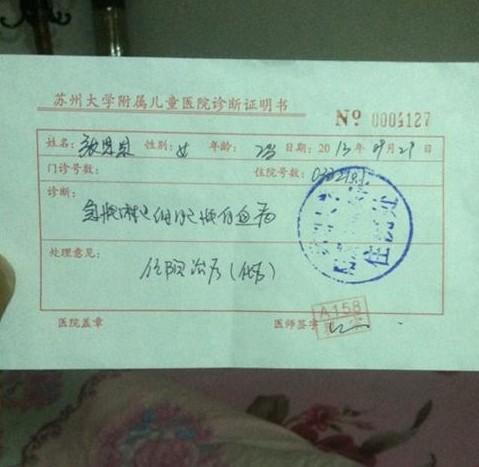 苏州大学附属儿童医院诊断证明书
Nº 0004127
姓名: 性别: 女 年龄: 2岁 日期: 2013年09月29日
门诊号数: 住院号数:
诊断:
急性淋巴细胞性白血病
处理意见:
住院治疗(化疗)
A158
医院盖章 医师签字